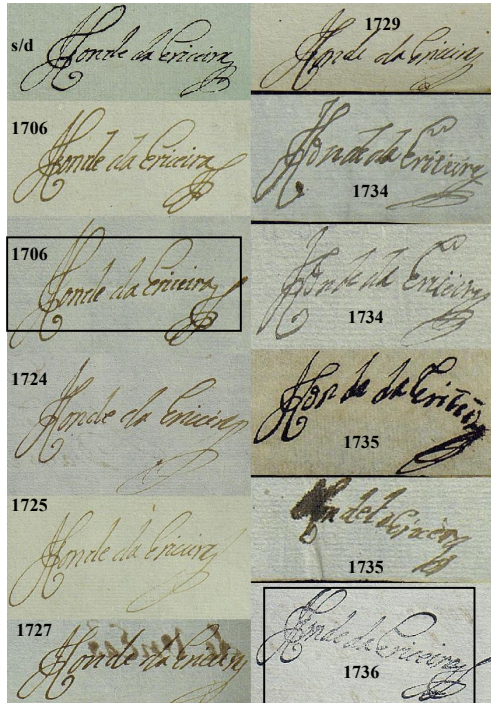 s/d
Conde da Ericeira
1706
Conde da Ericeira
1706
Conde da Ericeira
1724
Conde da Ericeira
1725
Conde da Ericeira
1727
Conde da Ericeira
1729
Conde da Ericeira
Conde da Ericeira
1734
Conde da Ericeira
1734
Conde da Ericeira
1735
1735
Conde da Ericeira
1736